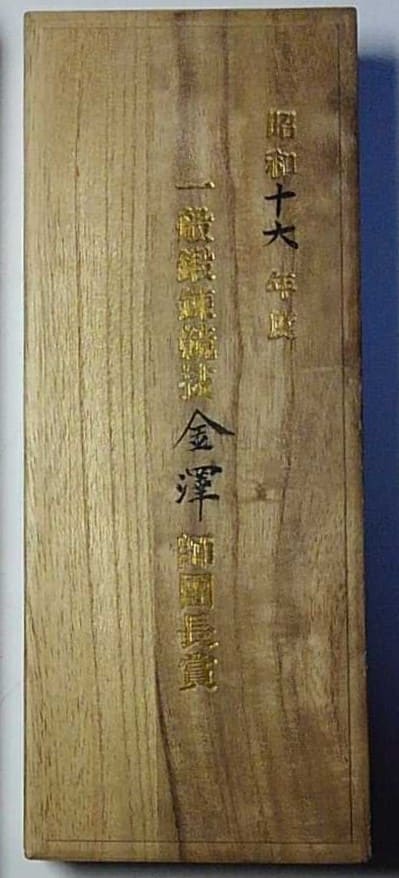 昭和十六年度
一般鍛錬競技金澤師團長賞